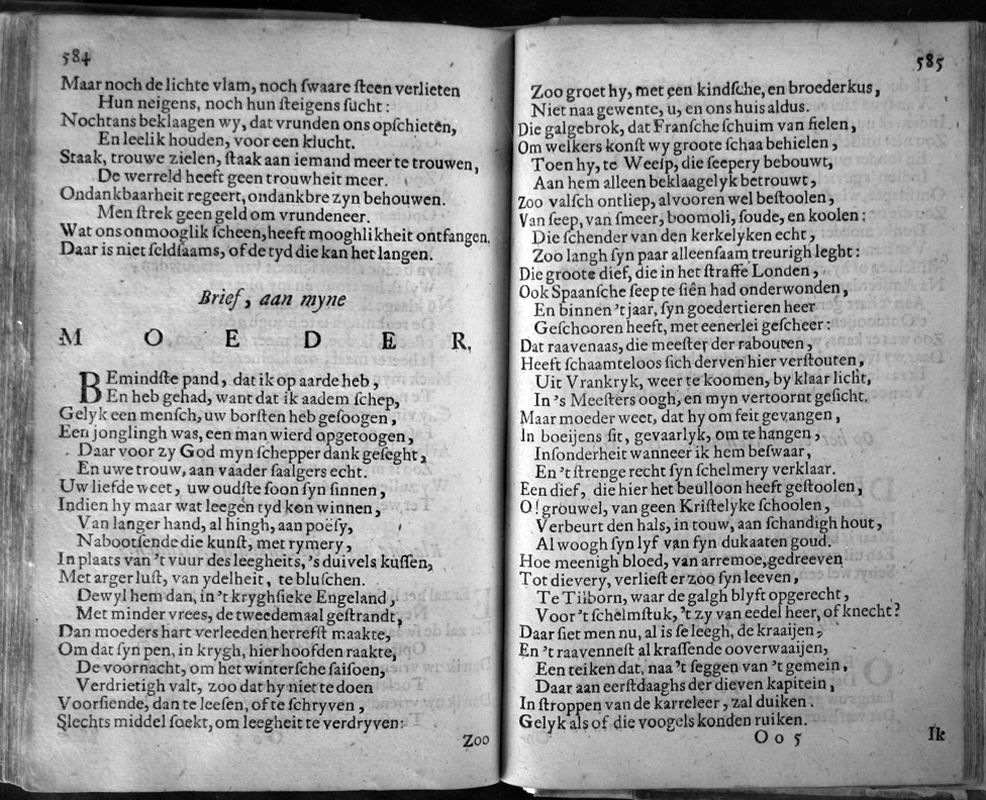 584
Maar noch de lichte vlam, noch swaare steen verlieten
Hun neigens, noch hun steigens sucht:
Nochtans beklaagen wy, dat vrunden ons opschieten,
En leelik houden, voor een klucht.
Staak, trouwe zielen, staak aan iemand meer te trouwen,
De werreld heeft geen trouwheit meer.
Ondankbaarheit regeert, ondankbre zyn behouwen.
Men strek geen geld om vrundeneer.
Wat ons onmooglik scheen, heeft mooghlikheit ontfangen.
Daar is niet seldsaams, of de tyd die kan het langen.
Brief, aan myne
MOEDER.
BEmindste pand, dat ik op aarde heb,
En heb gehad, want dat ik aadem schep,
Gelyk een mensch, uw borsten heb gesoogen,
Een jonglingh was, een man wierd opgetoogen,
Daar voor zy God myn schepper dank geseght,
En uwe trouw, aan vaader saalgers echt.
Uw liefde weet, uw oudste soon syn sinnen,
Indien hy maar wat leegen tyd kon winnen,
Van langer hand, al hingh, aan poësy,
Nabootsende die kunst, met rymery,
In plaats van 't vuur des leegheits, 's duivels kussen,
Met arger lust, van ydelheit, te bluschen.
Dewyl hem dan, in 't kryghsieke Engeland,
Met minder vrees, de tweedemaal gestrandt,
Dan moeders hart verleeden herrefst maakte,
Om dat syn pen, in krygh, hier hoofden raakte,
De voornacht, om het wintersche saisoen,
Verdrietigh valt, zoo dat hy niet te doen
Voorsiende, dan te leesen, of te schryven,
Slechts middel soekt, om leegheit te verdryven:
Zoo
585
Zoo groet hy, met een kindsche, en broederkus,
Niet naa gewente, u, en ons huis aldus.
Die galgebrok, dat Fransche schuim van fielen,
Om welkers konst wy groote schaa behielen,
Toen hy, te Weesp, die seepery bebouwt,
Aan hem alleen beklaagelyk betrouwt,
Zoo valsch ontliep, alvooren wel bestoolen,
Van seep, van smeer, boomoli, soude, en koolen:
Die schender van den kerkelyken echt,
Zoo langh syn paar alleensaam treurigh leght:
Die groote dief, die in het straffe Londen,
Ook Spaansche seep te siên had onderwonden,
En binnen 't jaar, syn goedertieren heer
Geschooren heeft, met eenerlei gescheer:
Dat raavenaas, die meester der rabouten,
Heeft schaamteloos sich derven hier verstouten,
Uit Vrankryk, weer te koomen, by klaar licht,
In 's Meesters oogh, en myn vertoornt gesicht.
Maar moeder weet, dat hy om feit gevangen,
In boeijens sit, gevaarlyk, om te hangen,
Insonderheit wanneer ik hem beswaar,
En 't strenge recht syn schelmery verklaar.
Een dief, die hier het beulloon heeft gestoolen,
O! grouwel, van geen Kristelyke schoolen,
Verbeurt den hals, in touw, aan schandigh hout,
Al woogh syn lyf van syn dukaaten goud.
Hoe meenigh bloed, van arremoe, gedreeven
Tot dievery, verliest er zoo syn leeven,
Te Tilborn, waar de galgh blyft opgerecht,
Voor 't schelmstuk, 't zy van eedel heer, of knecht?
Daar siet men nu, al is se leegh, de kraaijen,
En 't raavennest al krassende ooverwaaijen,
Een teiken dat, naa 't seggen van 't gemein,
Daar aan eerstdaaghs der dieven kapitein,
In stroppen van de karreleer, zal duiken.
Gelyk als of die voogels konden ruiken.
Oo 5
Ik